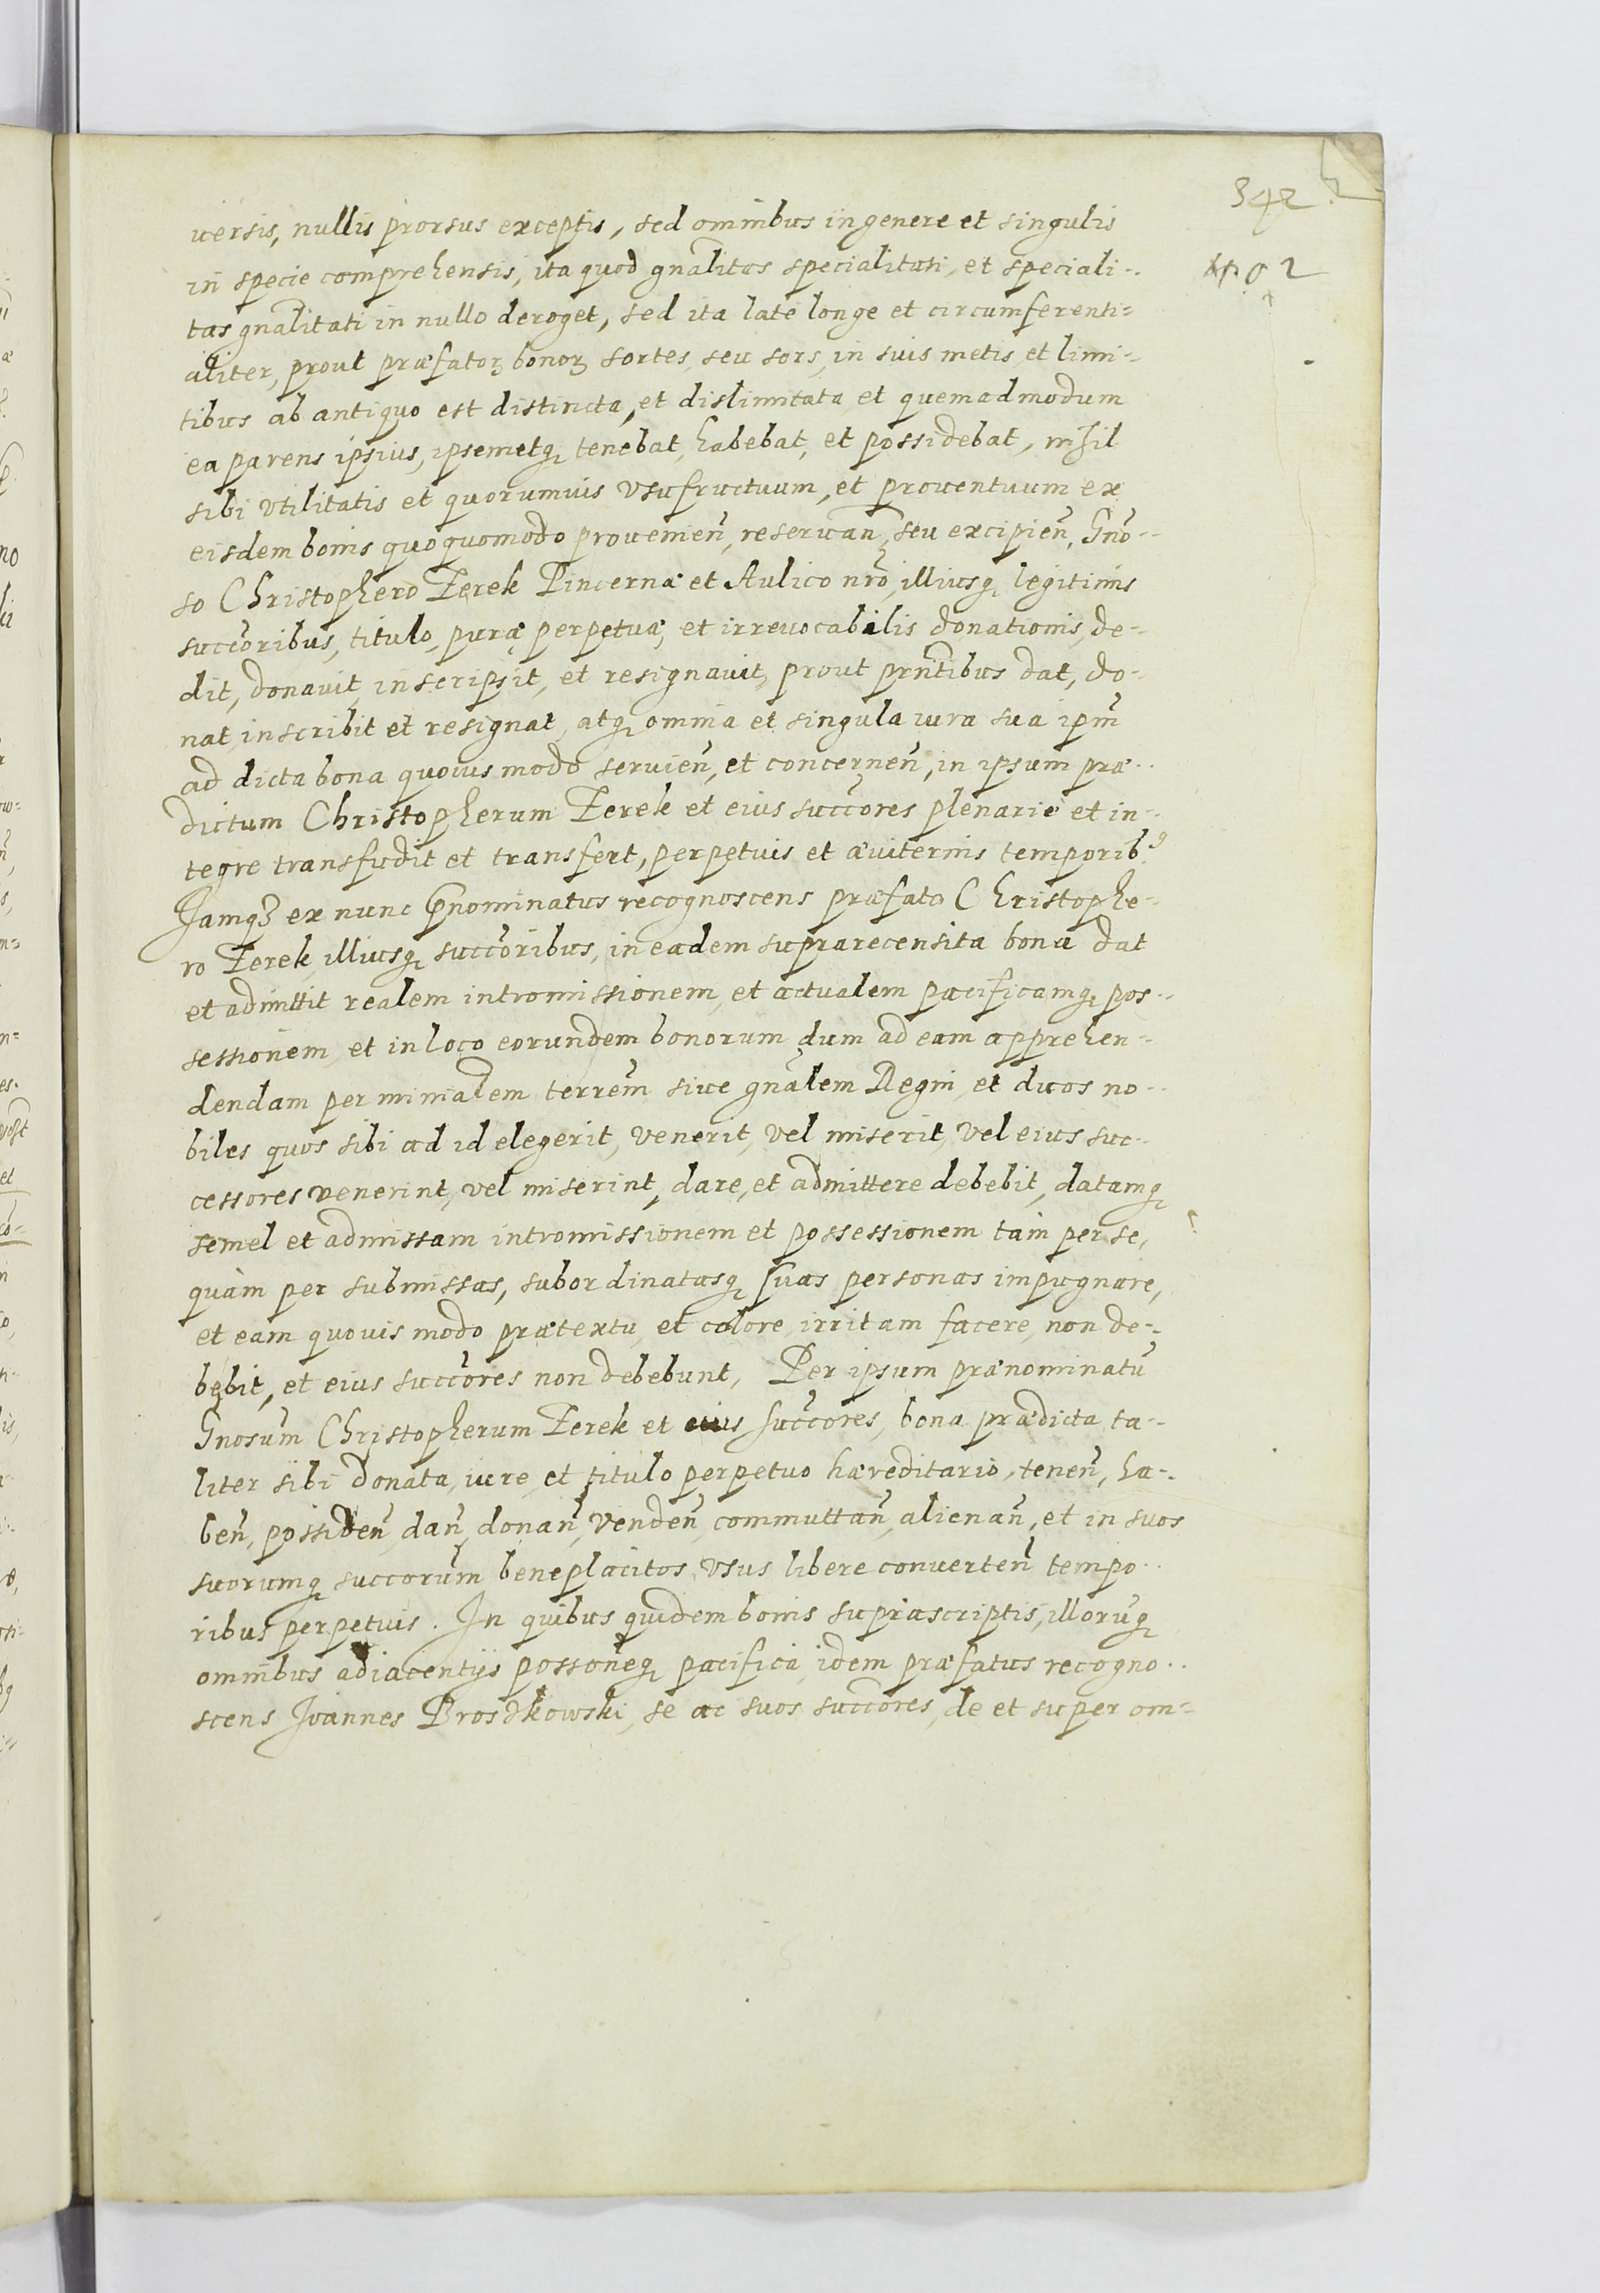 342
402
uersis, nullis prorsus exceptis, sed omnibus in genere et singulis
in specie comprehensis, ita quod gnalitas specialitati, et speciali-
tas gnalitati in nullo deroget, sed ita late longe et circumferenti=
aliter, prout præfatoꝝ bonoꝝ sortes, seu sors, in suis metis et limi-
tibus ab antiquo est distincta, et dislimitata et quemadmodum
ea parens ipsius, ipsemetq tenebat, habebat, et possidebat, nihil
sibi vtilitatis et quorumuis vsufructuum, et prouentuum ex
eisdem bonis quoquomodo prouenien̄, reseruan̄, seu excipien̄, Gno-
so Christophero Zerek Pincernæ et Aulico nr̄o, illiusq legitimis
succoribus, titulo, puræ perpetuæ, et irreuocabilis donationis, de-
dit, donauit, inscripsit, et resignauit, prout prn̄tibus dat, do-
nat, inscribit et resignat, atq omnia et singula iura sua ipm̄
ad dicta bona quouismodo seruien̄, et concernen̄, in ipsum præ-
dictum Christopherum Zerek et eius succōres plenarie et in-
tegre transfudit et transfert, perpetuis et æuiternis temporib9
Jamqꝫ ex nunc prnominatus recognoscens præfato Christophe-
ro Zerek, illiusq succōribus, in eadem suprarecensita bona dat
et admittit realem intromissionem, et actualem pacificamq pos-
sessionem, et in loco eorundem bonorum dum ad eam apprehen-
dendam per minialem terrem̄ siue gn̄alem Regni, et duos no-
biles quos sibi ad id elegerit, venerit, vel miserit, vel eius suc-
cessores venerint, vel miserint, dare, et admittere debebit, datamq
semel et admissam intromissionem et possessionem tam per se,
quàm per submissas, subordinatasq suas personas impugnare,
et eam quouis modo prætextu, et colore irritam facere, non de-
bebit, et eius succōres non debebunt, Per ipsum prænominatū
Gnosum̄ Christopherum Zerek et eius succōres, bona prædicta ta-
liter sibi donata, iure et titulo perpetuo hæreditario, tenen̄, ha-
ben̄, possiden̄, dan̄, donan̄, venden̄, commuttan̄, alienan̄, et in suos
suorumq succorum̄ beneplacitos vsus libere conuerten̄ tempo
ribus perpetuis. In quibus quidem bonis suprascriptis, illorūq
omnibus adiacentijs possoneq pacifica, idem præfatus recogno
scens Joannes Brosdkowski, se ac suos succōres, de et super om=